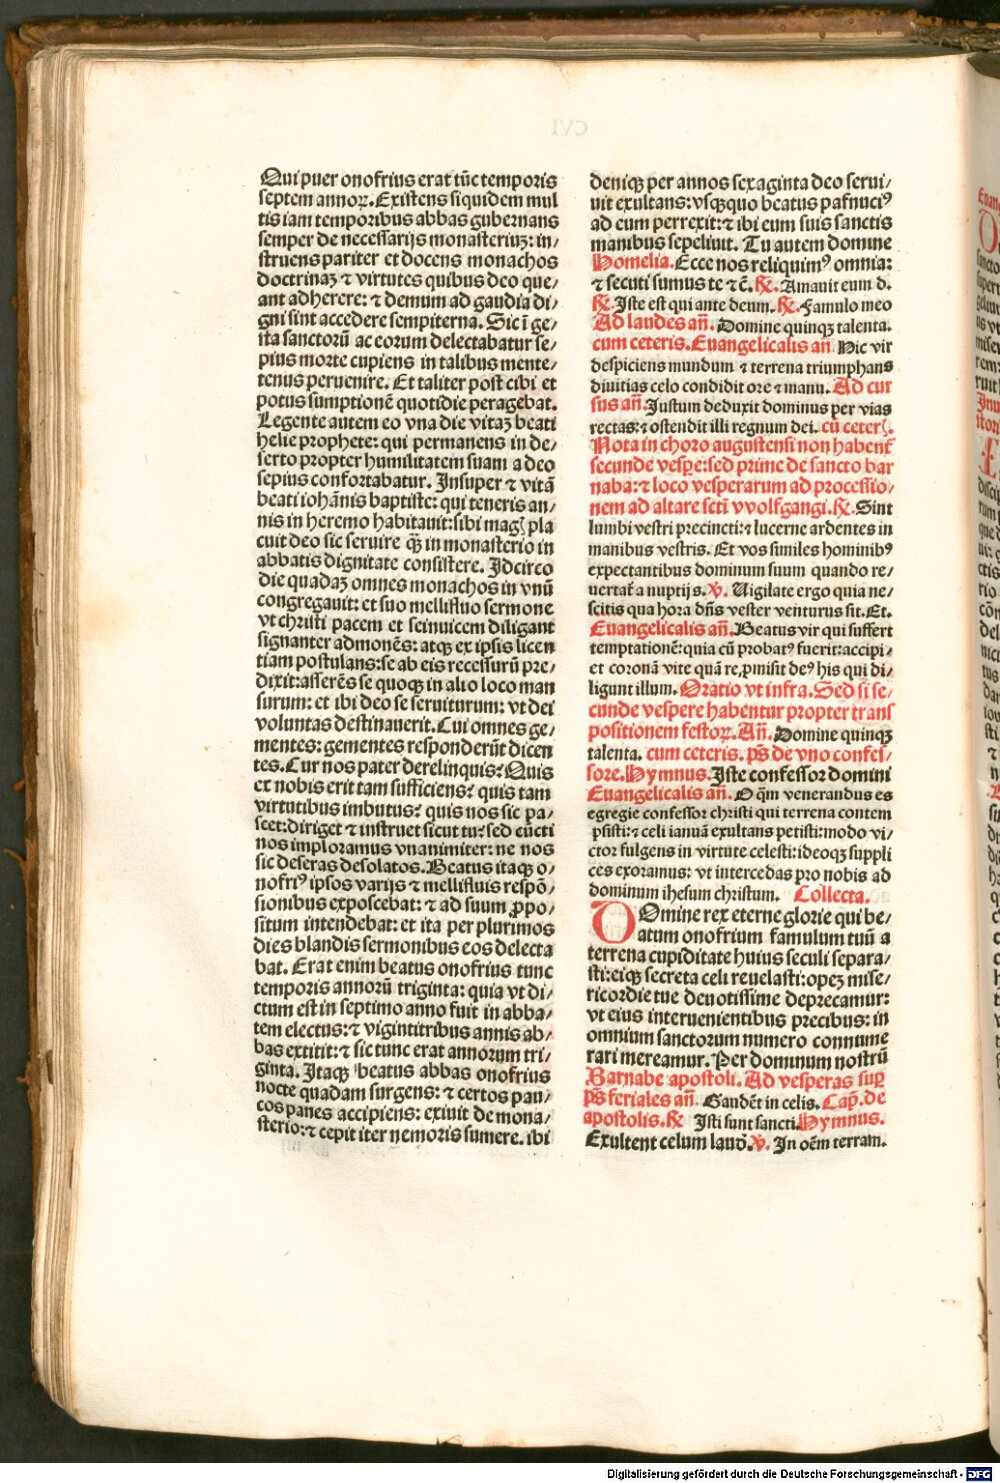 Qui puer onofrius erat tūc temporis
septem annoꝝ. Existens siquidem mul
tis iam temporibus abbas gubernans
semper de necessarijs monasteriuꝫ: in/
struens pariter et docens monachos
doctrinaꝫ ⁊ virtutes quibus deo que/
ant adherere: ⁊ demum ad gaudia di/
gni sint accedere sempiterna. Sic ī ge/
sta sanctorū ac eorum delectabatur se/
pius morte cupiens in talibus mente/
tenus peruenire. Et taliter post cibi et
potus sumptionē quotidie peragebat.
Legente autem eo vna die vitaꝫ beati
helie prophete: qui permanens in de/
serto propter humilitatem suam a deo
sepius confortabatur. Insuper ⁊ vitā
beati iohānis baptiste: qui teneris an/
nis in heremo habitauit: sibi mag̃ pla
cuit deo sic seruire q̄ꝫ in monasterio in
abbatis dignitate consistere. Idcirco
die quadaꝫ omnes monachos in vnū
congregauit: et suo mellifluo sermone
vt christi pacem et seinuicem diligant
signanter admonēs: atqꝫ ex ipsis licen
tiam postulans: se ab eis recessurū pre/
dixit: asserēs se quoqꝫ in alio loco man
surum: et ibi deo se seruiturum: vt dei
voluntas destinauerit. Cui omnes ge/
mentes: gementes responderūt dicen
tes. Cur nos pater derelinquis? Quis
et nobis erit tam sufficiens? quis tam
virtutibus imbutus? quis nos sic pa/
scet: diriget ⁊ instruet sicut tu? sed cūcti
nos imploramus vnanimiter: ne nos
sic deseras desolatos. Beatus itaqꝫ o/
nofriꝰ ipsos varijs ⁊ mellifluis respō/
sionibus exposcebat: ⁊ ad suum ꝓpo/
situm intendebat: et ita per plurimos
dies blandis sermonibus eos delecta
bat. Erat enim beatus onofrius tunc
temporis annorū triginta: quia vt di/
ctum est in septimo anno fuit in abba/
tem electus: ⁊ vigintitribus annis ab/
bas extitit: ⁊ sic tunc erat annorum tri/
ginta. Itaqꝫ beatus abbas onofrius
nocte quadam surgens: ⁊ certos pau/
cos panes accipiens: exiuit de mona/
sterio: ⁊ cepit iter nemoris sumere. ibi
deniqꝫ per annos sexaginta deo serui/
uit exultans: vsqꝫquo beatus pafnuciꝰ
ad eum perrexit: ⁊ ibi eum suis sanctis
manibus sepeliuit. Tu autem domine
Homelia. Ecce nos reliquimꝰ omnia:
⁊ secuti sumus te ⁊ c̄. ℟. Amauit eum d.
℟. Iste est qui ante deum. ℟. Famulo meo
Ad laudes añ. Domine quinqꝫ talenta.
cum ceteris. Euangelicalis añ Hic vir
despiciens mundum ⁊ terrena triumphans
diuitias celo condidit ore ⁊ manu. Ad cur
sus añ. Justum deduxit dominus per vias
rectas: ⁊ ostendit illi regnum dei. cū ceteris.
Nota in choro augustensi non habent̄
secunde vespe: sed prime de sancto bar
naba: ⁊ loco vesperarum ad processio/
nem ad altare scti vvolfgangi. ℟. Sint
lumbi vestri precincti: ⁊ lucerne ardentes in
manibus vestris. Et vos similes hominibꝰ
expectantibus dominum suum quando re/
uertat̄ a nuptijs. ℣. Uigilate ergo quia ne/
scitis qua hora dñs vester venturus sit. Et.
Euangelicalis añ. Beatus vir qui suffert
temptationē: quia cū probatꝰ fuerit: accipi/
et coronā vite quā re,pmisit deꝰ his qui di/
ligunt illum. Oratio vt infra. Sed si se/
cunde vespere habentur propter trans
positionem festoꝝ. Añ. Domine quinqꝫ
talenta. cum ceteris. p̄s de vno confes/
sore. Hymnus. Iste confessor domini
Euangelicalis añ. O q̄m venerandus es
egregie confessor christi qui terrena contem
psisti: ⁊ celi ianuā exultans petisti: modo vi/
ctor fulgens in virtute celesti: ideoqꝫ suppli
ces exoramus: vt intercedas pro nobis ad
dominum ihesum christum. Collecta.
DOmine rex eterne glorie qui be/
atum onofrium famulum tuū a
terrena cupiditate huius seculi separa/
sti: eiqꝫ secreta celi reuelasti: opeꝫ mise/
ricordie tue deuotissime deprecamur:
vt eius interuenientibus precibus: in
omnium sanctorum numero connume
rari mereamur. Per dominum nostrū
Barnabe apostoli. Ad vesperas suꝑ
p̄s feriales añ. Gaudēt in celis. Cap̄. de
apostolis. ℟ Isti sunt sancti. Hymnus.
Exultent celum laud. ℣. In oēm terram.
Digitalisierung gefördert durch die Deutsche Forschungsgemeinschaft - DFG